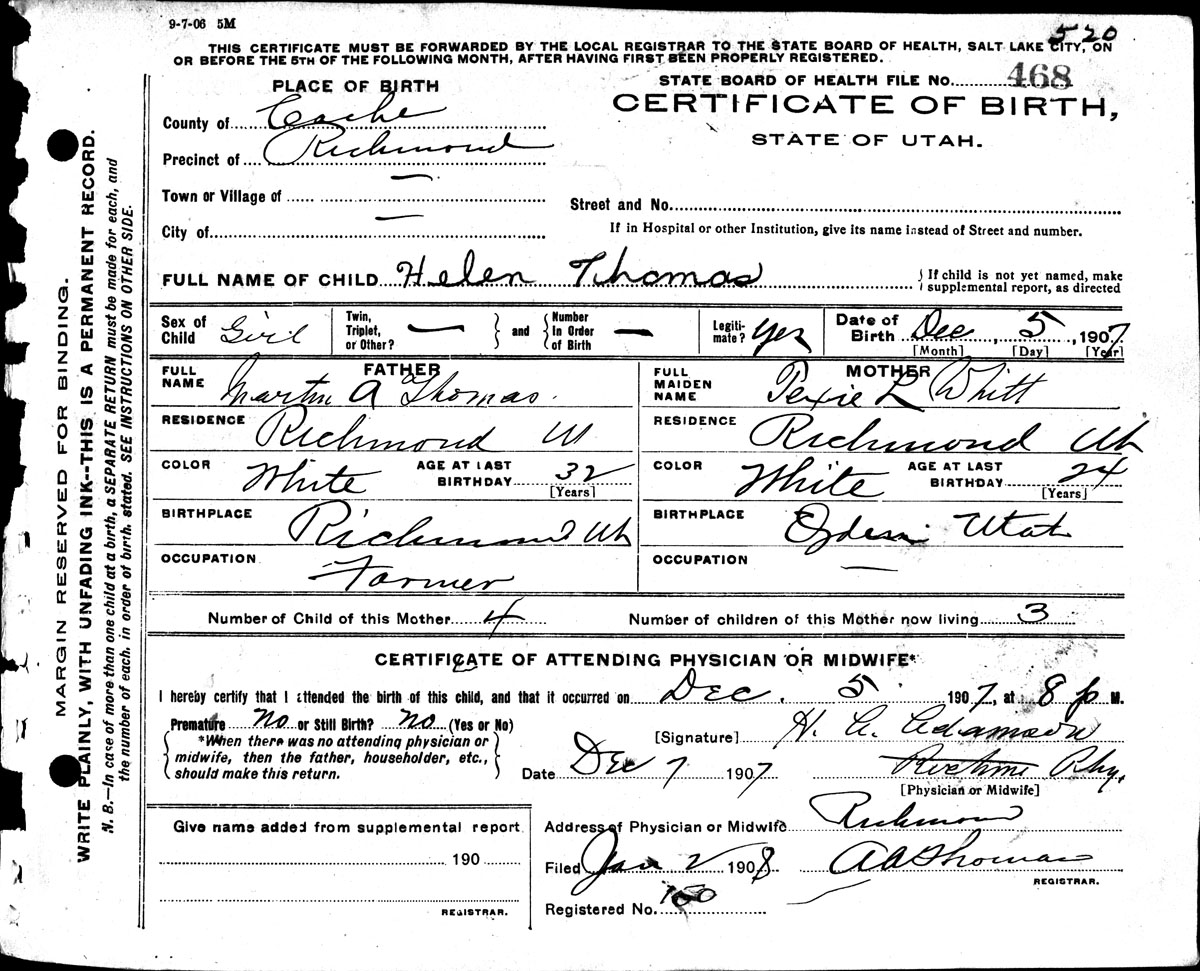 9-7-06 5M
520
THIS CERTIFICATE MUST BE FORWARDED BY THE LOCAL REGISTRAR TO THE STATE BOARD OF HEALTH, SALT LAKE CITY, ON
OR BEFORE THE 5TH OF THE FOLLOWING MONTH, AFTER HAVING FIRST BEEN PROPERLY REGISTERED.
STATE BOARD OF HEALTH FILE No. 468
PLACE OF BIRTH
CERTIFICATE OF BIRTH,
STATE OF UTAH.
County of Cache
Precinct of Richmond
Town or Village of —
City of —
Street and No.
If in Hospital or other Institution, give its name instead of Street and number.
FULL NAME OF CHILD Helen Thomas
{ If child is not yet named, make
supplemental report, as directed
Sex of Child Girl
Twin, Triplet, or Other? — } and { Number In Order of Birth —
Legiti-mate? Yes
Date of Birth Dec, 5, 1907
[Month] [Day] [Year]
FATHER
FULL NAME Martin A Thomas.
RESIDENCE Richmond Ut
COLOR White AGE AT LAST BIRTHDAY 32
[Years]
BIRTHPLACE Richmond Ut
OCCUPATION Farmer
MOTHER
FULL MAIDEN NAME L Whitt
RESIDENCE Richmond Ut
COLOR White AGE AT LAST BIRTHDAY 24
[Years]
BIRTHPLACE Ogden Utah
OCCUPATION —
Number of Child of this Mother 4 Number of children of this Mother now living 3
CERTIFICATE OF ATTENDING PHYSICIAN OR MIDWIFE*
I hereby certify that I attended the birth of this child, and that it occurred on Dec. 5. 1907, at 8 p M.
Premature no or Still Birth? no (Yes or No)
{ *When there was no attending physician or
midwife, then the father, householder, etc.,
should make this return. }
[Signature] H. C. Adamson
Date Dec 7 1907 Phy.
[Physician or Midwife]
Give name added from supplemental report
190
REGISTRAR.
Address of Physician or Midwife Richmond
Filed Jan 2 1908 A A Thomas
REGISTRAR.
Registered No. 150
MARGIN RESERVED FOR BINDING.
WRITE PLAINLY, WITH UNFADING INK--THIS IS A PERMANENT RECORD.
N. B.—In case of more than one child at a birth, a SEPARATE RETURN must be made for each, and
the number of each, in order of birth, stated. SEE INSTRUCTIONS ON OTHER SIDE.